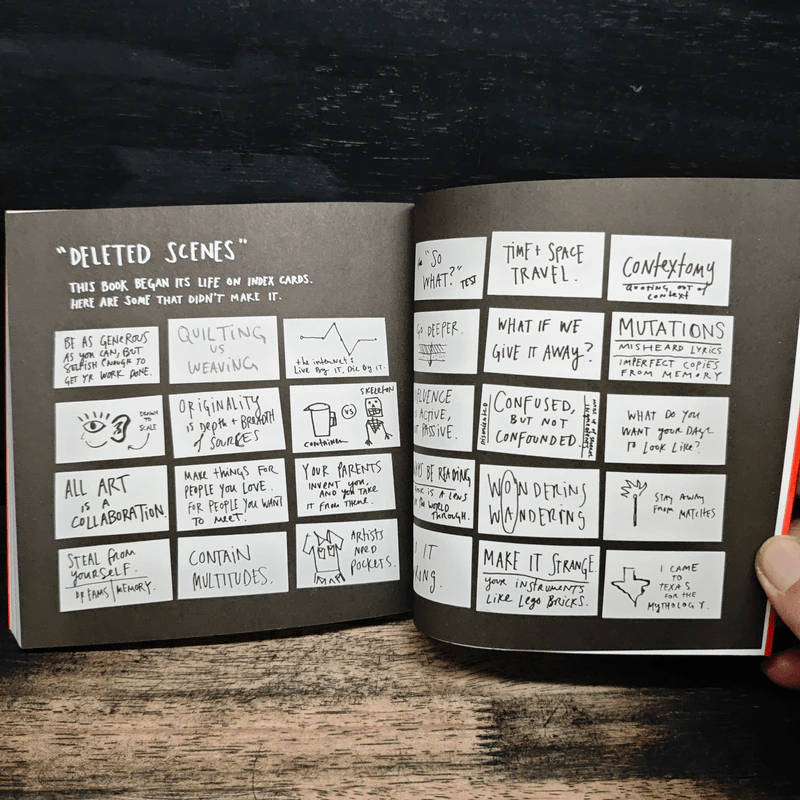 "DELETED SCENES"
THIS BOOK BEGAN ITS LIFE ON INDEX CARDS.
HERE ARE SOME THAT DIDN'T MAKE IT.
BE AS GENEROUS
AS YOU CAN, BUT
SELFISH ENOUGH TO
GET YR WORK DONE.
QUILTING
VS
WEAVING
the internet:
Live By IT, Die By IT.
DRAWN
TO
SCALE
ORIGINALITY
IS DEPTH + BREADTH
of SOURCES
CONTAINER
VS
SKELETON
ALL ART
IS A
COLLABORATION.
MAKE THINGS FOR
PEOPLE YOU LOVE.
FOR PEOPLE YOU WANT
TO MEET.
YOUR PARENTS
INVENT YOU,
AND YOU TAKE
IT FROM THERE.
STEAL FROM
YOURSELF.
DREAMS | MEMORY.
CONTAIN
MULTITUDES.
ARTISTS
NEED
POCKETS.
"SO
WHAT?"
TEST
TIME + SPACE
TRAVEL.
CONTEXTOMY
QUOTING OUT OF
CONTEXT
GO DEEPER.
WHAT IF WE
GIVE IT AWAY?
MUTATIONS
MISHEARD LYRICS
IMPERFECT COPIES
FROM MEMORY
CONFUSED,
BUT NOT
CONFOUNDED.
WHAT DO YOU
WANT YOUR DAYS
TO LOOK LIKE?
BE READING
IS A LENS
THE WORLD
THROUGH.
WONDERING
WANDERING
STAY AWAY
FROM MATCHES
IT
MAKE IT STRANGE.
YOUR INSTRUMENTS
LIKE LEGO BRICKS.
I CAME
TO
TEXAS
FOR THE
MYTHOLOGY.